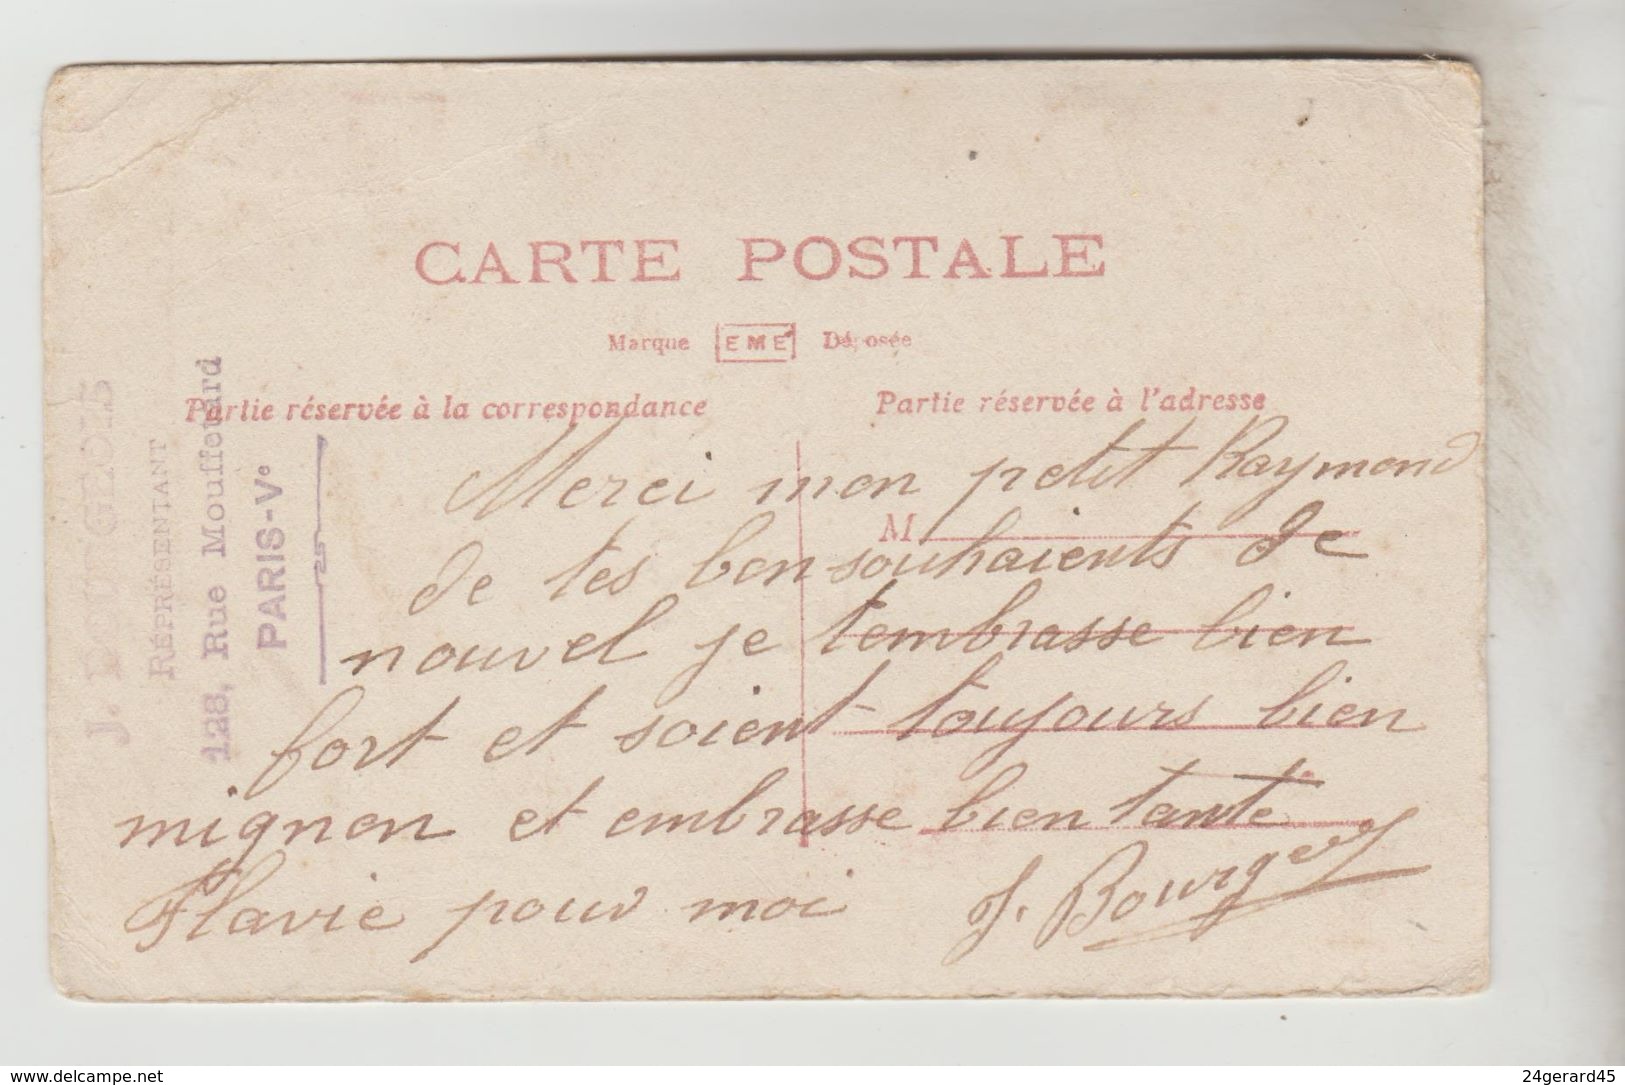 CARTE POSTALE
Marque EME Déposée
Partie réservée à la correspondance
Partie réservée à l'adresse
M
J.
REPRÉSENTANT
128, Rue Mouffetard
PARIS-Ve
Merci mon petit Raymond
de tes bon souhaients de
nouvel je t'embrasse bien
fort et soient toujours bien
mignon et embrasse bien tante
Flavie pour moi
J.
www.delcampe.net
24gerard45